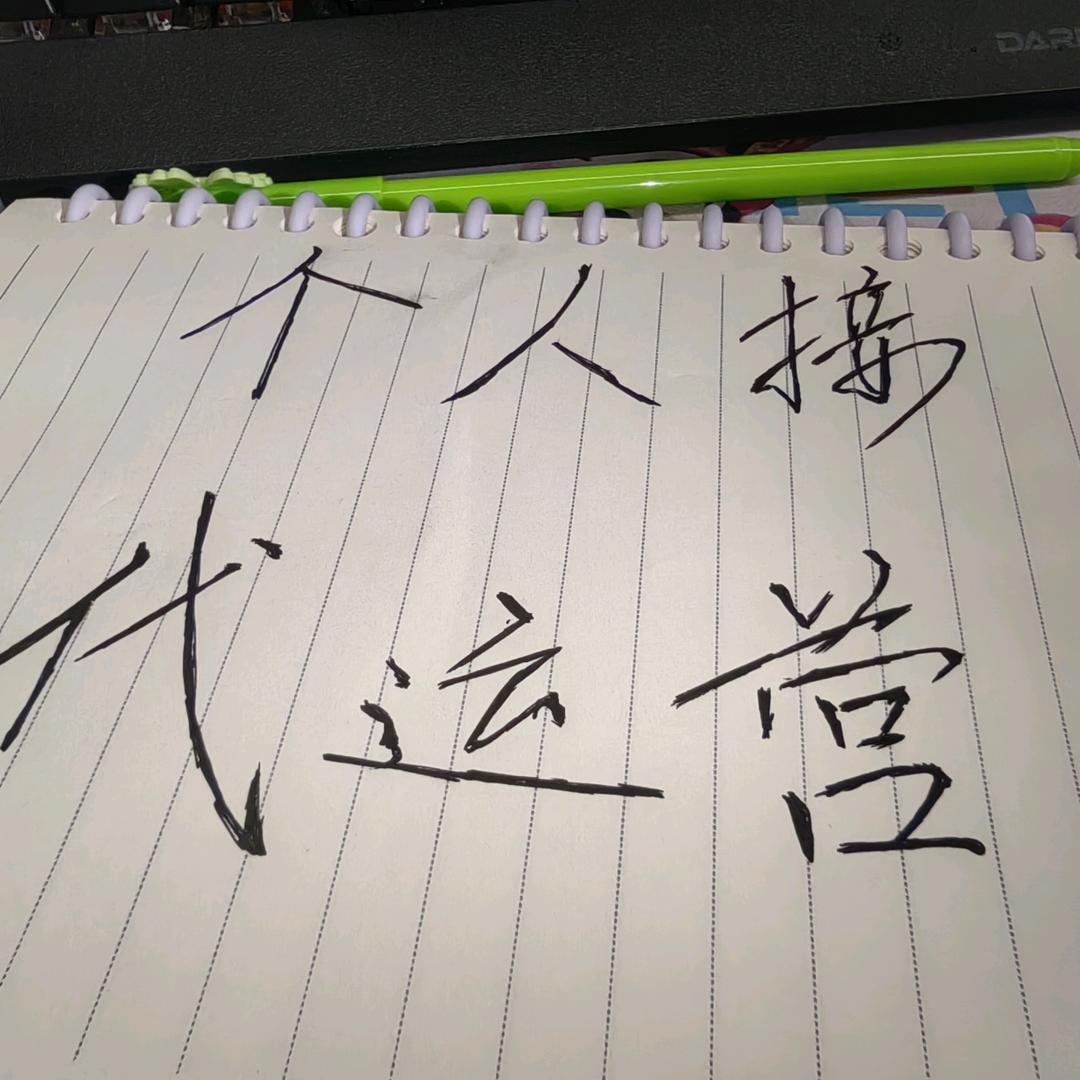 个人接
代运营